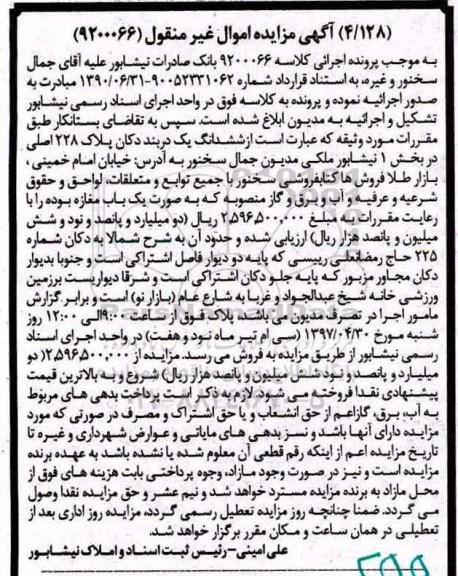 (۴/۱۲۸) آگهی مزایده اموال غیر منقول (۹۲۰۰۰۶۶)
به موجب پرونده اجرائی کلاسه ۹۲۰۰۰۶۶ بانک صادرات نیشابور علیه آقای جمال
سخنور و غیره، به استناد قرارداد شماره ۹۰۰۵۲۳۳۱۰۶۲-۱۳۹۰/۰۶/۳۱ مبادرت به
صدور اجرائیه نموده و پرونده به کلاسه فوق در واحد اجرای اسناد رسمی نیشابور
تشکیل و اجرائیه به مدیون ابلاغ شده است. سپس به تقاضای بستانکار طبق
مقررات مورد وثیقه که عبارت است از ششدانگ یک دربند دکان پلاک ۲۲۸ اصلی
در بخش ۱ نیشابور ملکی مدیون جمال سخنور به آدرس: خیابان امام خمینی،
بازار طلا فروش ها کتابفروشی سخنور با جمیع توابع و متعلقات، لواحق و حقوق
شرعیه و عرفیه و آب و برق و گاز منصوبه که به صورت یک باب مغازه بوده را با
رعایت مقررات به مبلغ ۲،۵۹۶،۵۰۰،۰۰۰ ریال (دو میلیارد و پانصد و نود و شش
میلیون و پانصد هزار ریال) ارزیابی شده و حدود آن به شرح شمالا به دکان شماره
۲۲۵ حاج رمضانعلی رییسی که پایه دو دیوار فاصل اشتراکی است و جنوبا بدیوار
دکان مجاور مزبور که پایه جلو دکان اشتراکی است و شرقا دیواریست برزمین
ورزشی خانه شیخ عبدالجواد و غربا به شارع عام (بازار نو) است و برابر گزارش
مامور اجرا در تصرف مدیون می باشد، پلاک فوق از ساعت ۹:۰۰ الی ۱۲:۰۰ روز
شنبه مورخ ۱۳۹۷/۰۴/۳۰ (سی ام تیر ماه نود و هفت) در واحد اجرای اسناد
رسمی نیشابور از طریق مزایده به فروش می رسد. مزایده از ۲،۵۹۶،۵۰۰،۰۰۰( دو
میلیارد و پانصد و نود شش میلیون و پانصد هزار ریال) شروع و به بالاترین قیمت
پیشنهادی نقدا فروخته می شود. لازم به ذکر است پرداخت بدهی های مربوط
به آب، برق، گاز اعم از حق انشعاب و یا حق اشتراک و مصرف در صورتی که مورد
مزایده دارای آنها باشد و نسز بدهی های مالیاتی و عوارض شهرداری و غیره تا
تاریخ مزایده اعم از اینکه رقم قطعی آن معلوم شده یا نشده باشد به عهده برنده
مزایده است و نیز در صورت وجود مازاد، وجوه پرداختی بابت هزینه های فوق از
محل مازاد به برنده مزایده مسترد خواهد شد و نیم عشر و حق مزایده نقدا وصول
می گردد. ضمنا چنانچه روز مزایده تعطیل رسمی گردد، مزایده روز اداری بعد از
تعطیلی در همان ساعت و مکان مقرر برگزار خواهد شد.
علی امینی-رئیس ثبت اسناد و املاک نیشابور